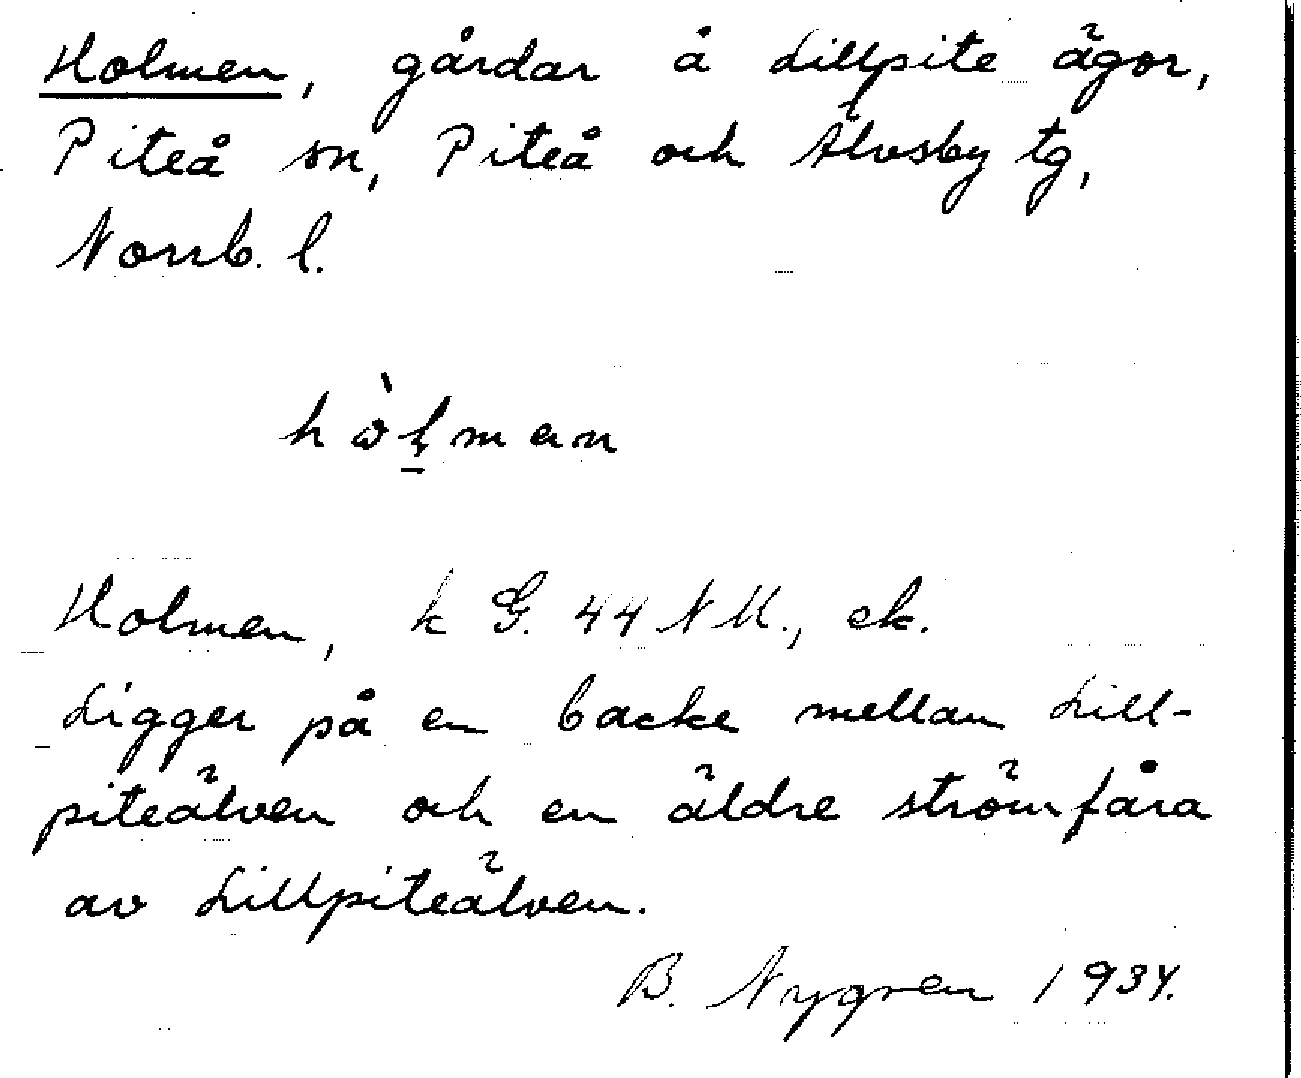 Holmen, gårdar å Lillpite ägor,
Piteå sn, Piteå och Älvsby tg,
Norrb. l.
Holmen, k G. 44 NU., ek.
Ligger på en backe mellan Lill-
piteälven och en äldre strömfåra
av Lillpiteälven.
B. Nygren 1934.